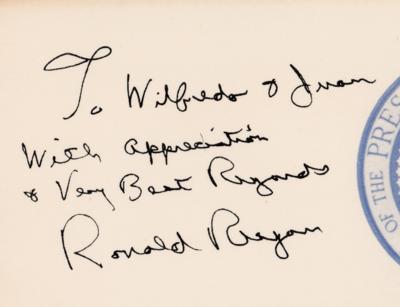 To Wilfredo & Juan
With appreciation
& Very Best Regards
Ronald Reagan
OF THE PRES